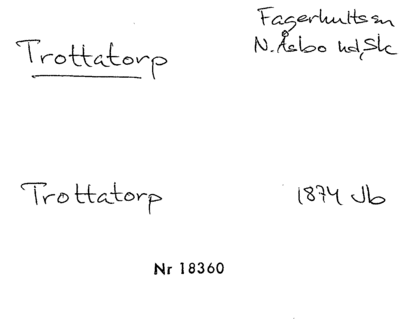 Trottatorp
Fagerhults sn
N. Åsbo hd, Sk
Trottatorp
1874 Jb
Nr 18360